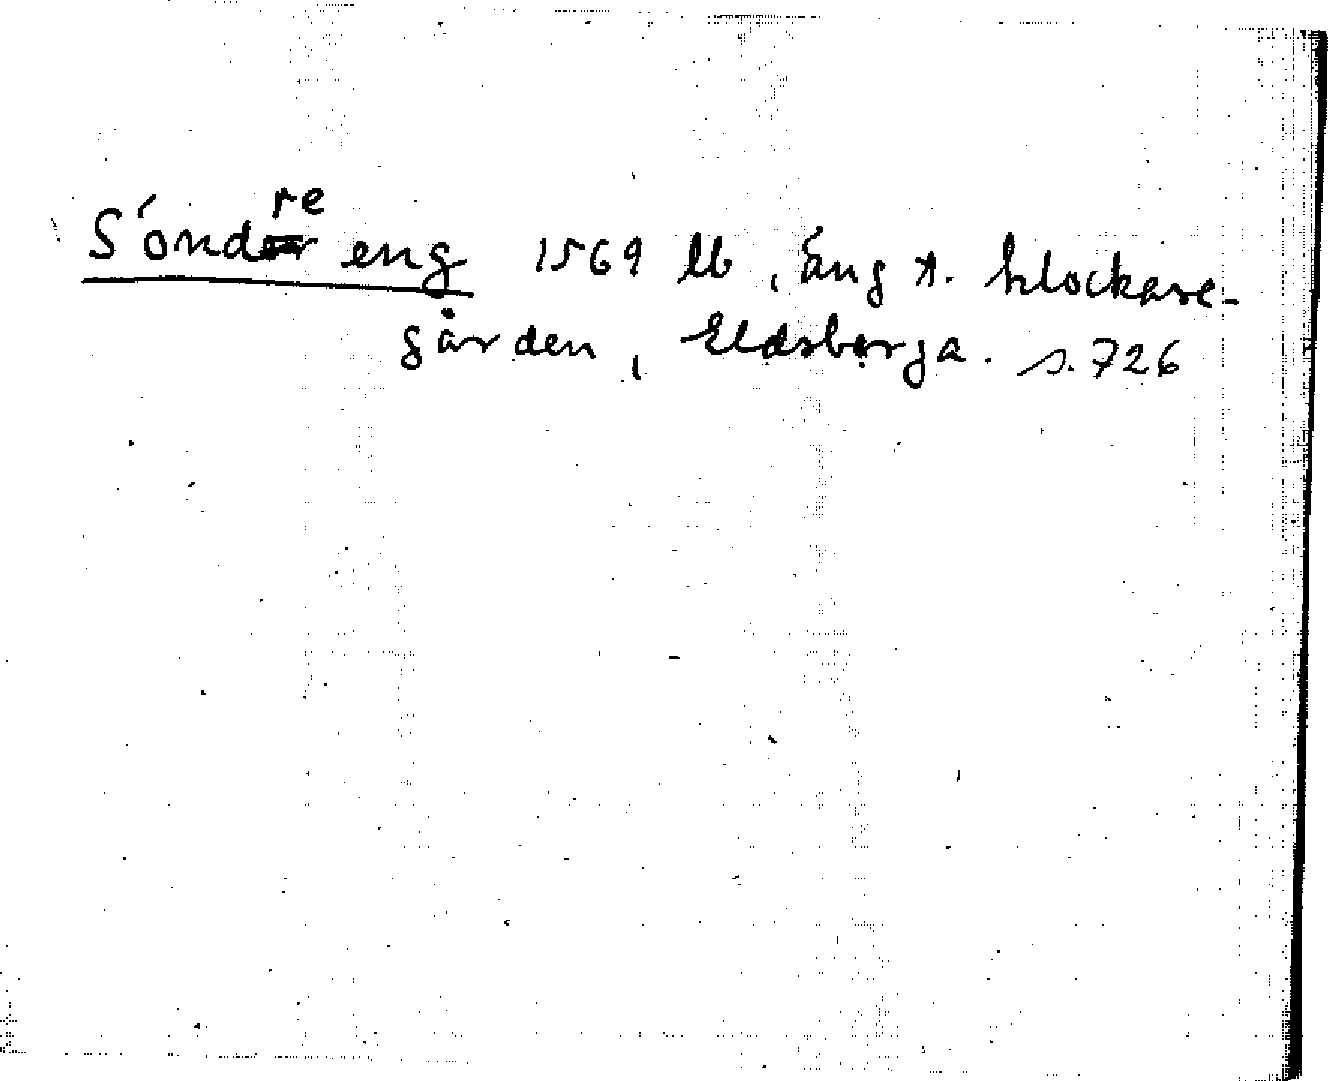 Söndre eng 1569 lb, Äng t. klockare-
gården, Eldsberga. s. 726